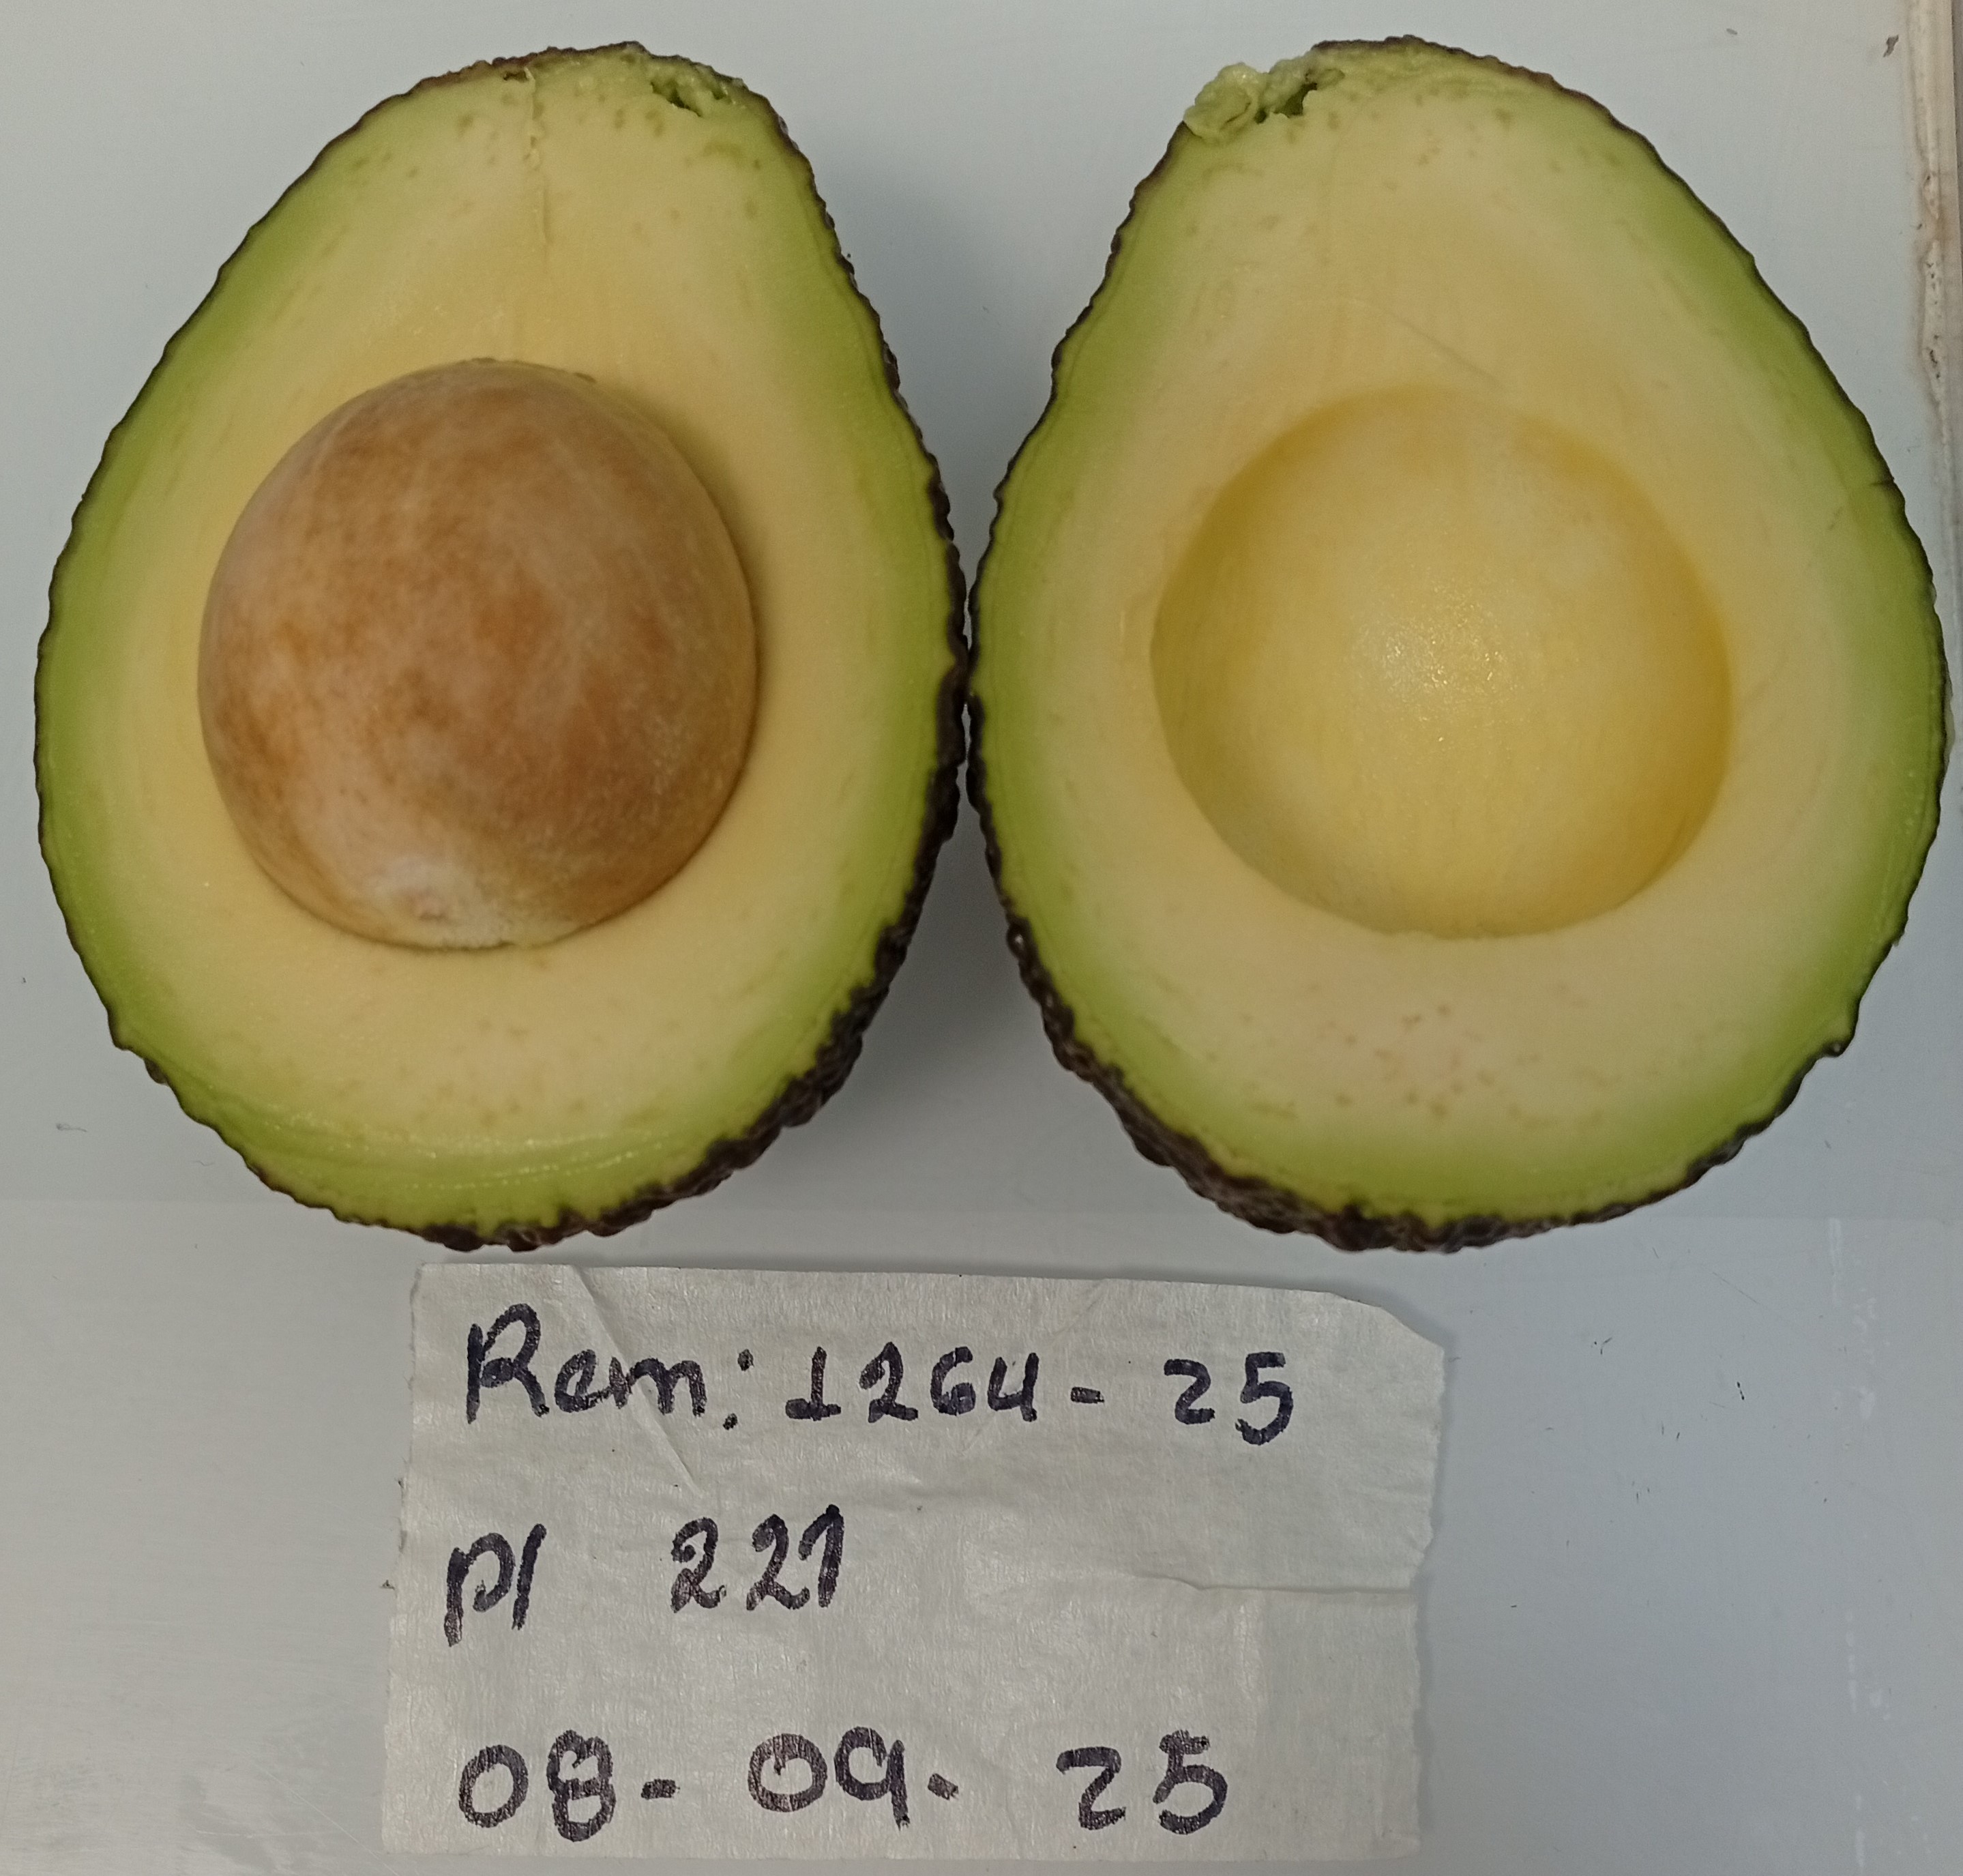 Rem: 1264 - 25
Pl 221
08 - 09 - 25